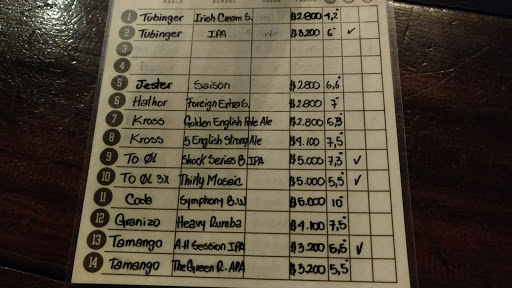 1 Tubinger Irish Cream S. $2.800 4,2°
2 Tubinger IPA $3.200 6° ✓
3
4
5 Jester Saison $2.800 6,6°
6 Hathor Foreign Extra S. $2.800 7°
7 Kross Golden English Pale Ale $2.800 5,3°
8 Kross 5 English Strong Ale $4.100 7,5°
9 To ØL Shock Series B. IPA $5.000 7,3° ✓
10 To ØL 3X Thirty Mosaic $5.000 5,5° ✓
11 Coda Symphony B.W $5.000 10°
12 Granizo Heavy Rumba $4.100 7,5°
13 Tamango A.H Session IPA $3.200 5,5° ✓
14 Tamango The Green R. APA $3.200 5,5°